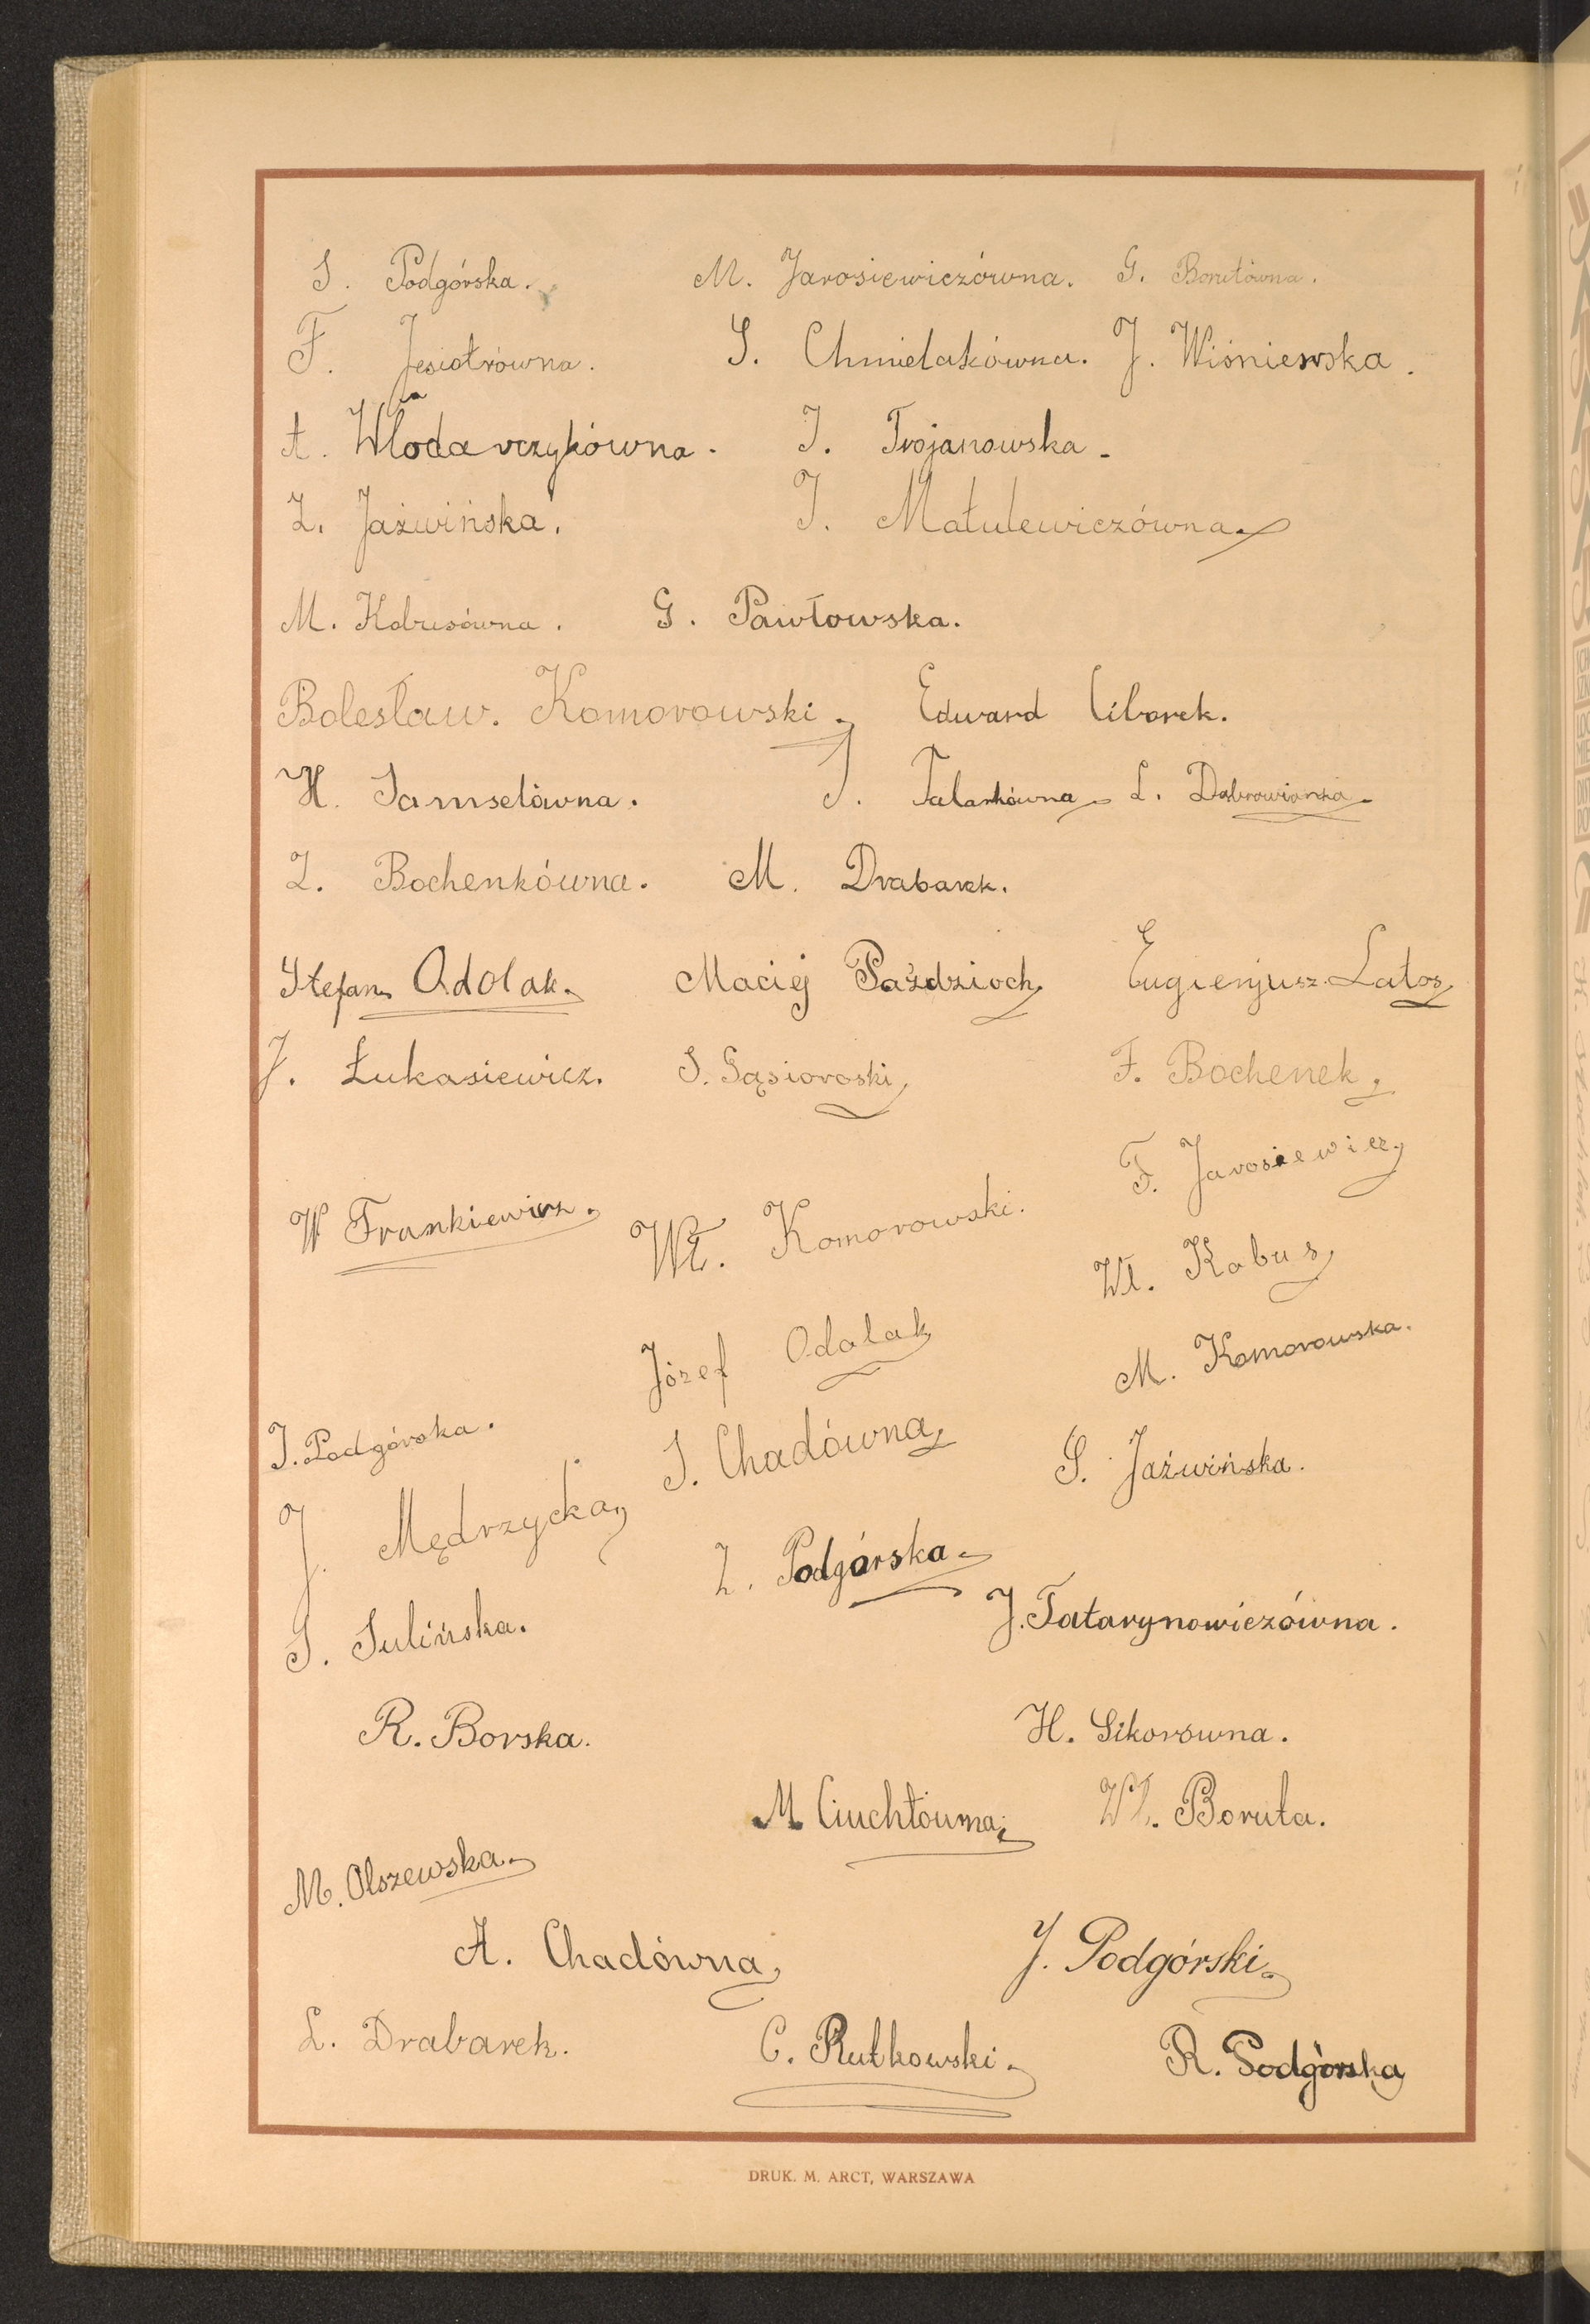 S. Podgórska. M. Jarosiewiczówna. G. Borutówna.
F. Jesiotrówna. S. Chmielakówna. J. Wiśniewska.
A. Włodarczykówna. I. Trojanowska.
Z. Jaźwińska. J. Matulewiczówna.
M. Kobusówna. G. Pawłowska.
Bolesław. Komorowski. Edward Ciborek.
H. Samselówna. J. Talarkówna. L. Dąbrowianka.
Z. Bochenkówna. M. Drabarek.
Stefan Odolak. Maciej Paździoch, Eugienjusz. Latos,
J. Łukasiewicz. S. Gąsioroski, F. Bochenek,
F. Jarosiewicz,
W Frankiewicz. Wł. Komorowski.
Wł. Kobus,
Józef Odalak, M. Komorowska.
I. Podgórska. S. Chadówna, S. Jaźwińska.
J. Mędrzycka,
Z. Podgórska.
S. Sulińska. J. Tatarynowiczówna.
R. Borska. H. Sikorówna.
M Ciuchtówna, Wł. Boruta.
M. Olszewska.
A. Chadówna, J. Podgórski.
L. Drabarek. C. Rutkowski. R. Podgórska
DRUK. M. ARCT, WARSZAWA